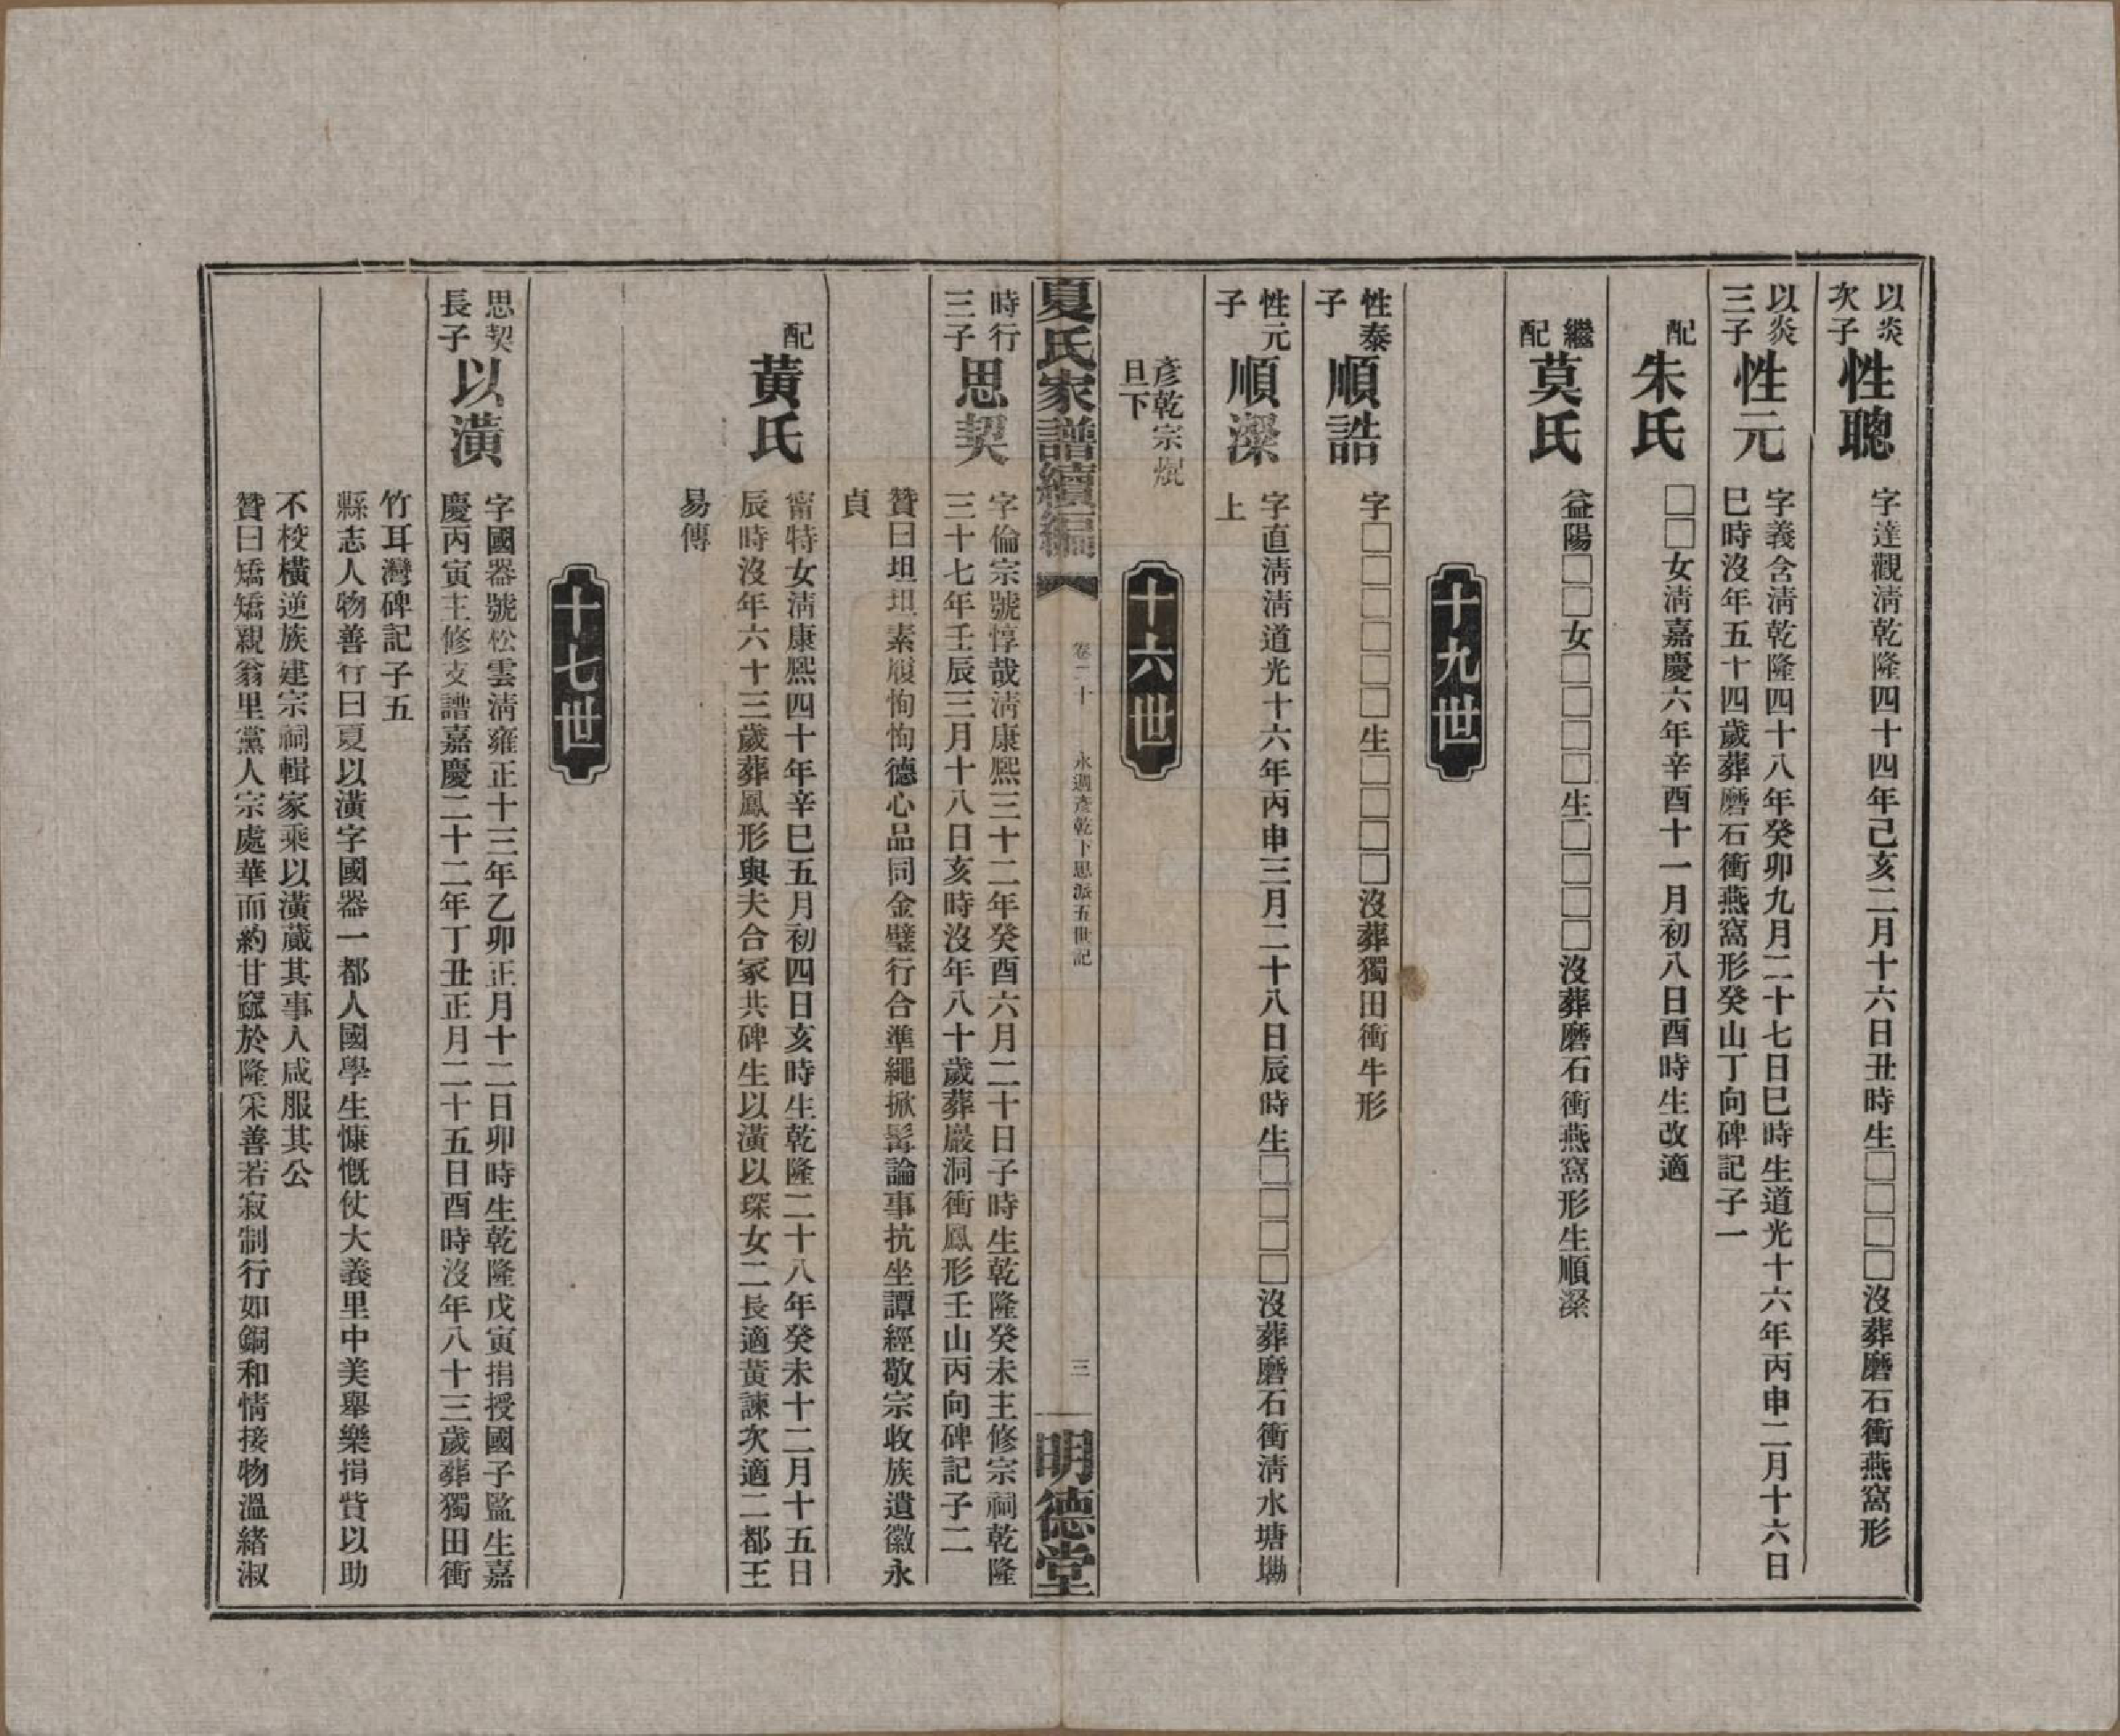 以炎次子
性聰
字達觀淸乾隆四十四年己亥二月十六日丑時生□□□□沒葬磨石衝燕窩形
以炎三子
性元
字義含淸乾隆四十八年癸卯九月二十七日巳時生道光十六年丙申二月十六日
巳時沒年五十四歲葬磨石衝燕窩形癸山丁向碑記子一
配
朱氏
□□女淸嘉慶六年辛酉十一月初八日酉時生改適
繼配
莫氏
益陽□□女□□□□生□□□□沒葬磨石衝燕窩形生順濴
十九世
性泰子
順誥
字□□□□□□生□□□□沒葬獨田衝牛形
性元子
順濴
字直淸淸道光十六年丙申三月二十八日辰時生□□□□沒葬磨石衝淸水塘㘭
上
十六世
彥乾宗焜
旦下
夏氏家譜續編
卷二十
永週彥乾下思派五世記
三
明德堂
時行三子
思契
字倫宗號惇哉淸康熙三十二年癸酉六月二十日子時生乾隆癸未主修宗祠乾隆
三十七年壬辰三月十八日亥時沒年八十歲葬嚴洞衝鳳形壬山丙向碑記子二
贊曰坦坦素履恂恂德心品同金璧行合準繩掀髯論事抗坐譚經敬宗收族遺徽永
貞
配
黃氏
甯特女淸康熙四十年辛巳五月初四日亥時生乾隆二十八年癸未十二月十五日
辰時沒年六十三歲葬鳳形與夫合冢共碑生以潢以琛女二長適黃諫次適二都王
易傳
十七世
思契長子
以潢
字國器號松雲淸雍正十三年乙卯正月十二日卯時生乾隆戊寅捐授國子監生嘉
慶丙寅主修支譜嘉慶二十二年丁丑正月二十五日酉時沒年八十三歲葬獨田衝
竹耳灣碑記子五
縣志人物善行曰夏以潢字國器一都人國學生慷慨仗大義里中美舉樂捐貲以助
不校橫逆族建宗祠輯家乘以潢蕆其事人咸服其公
贊曰矯矯親翁里黨人宗處華而約甘窳於隆宋善若寂制行如銅和情接物溫緒淑